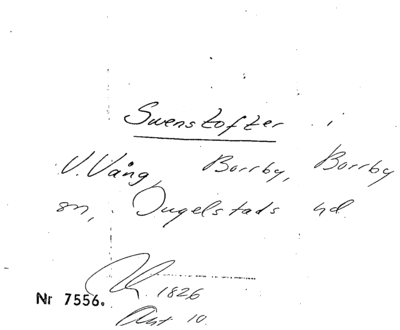 Swenstofter i
V. Vång, Borrby, Borrby
sn, Ingelstads hd
1826
Nr 7556.
Akt 10.